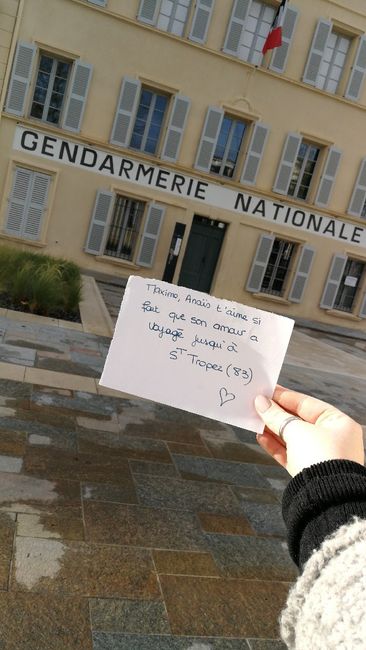 GENDARMERIE NATIONALE
Maxime, Anaïs t'aime si
fort que son amour a
voyagé jusqu'à
St Tropez (83)
♡